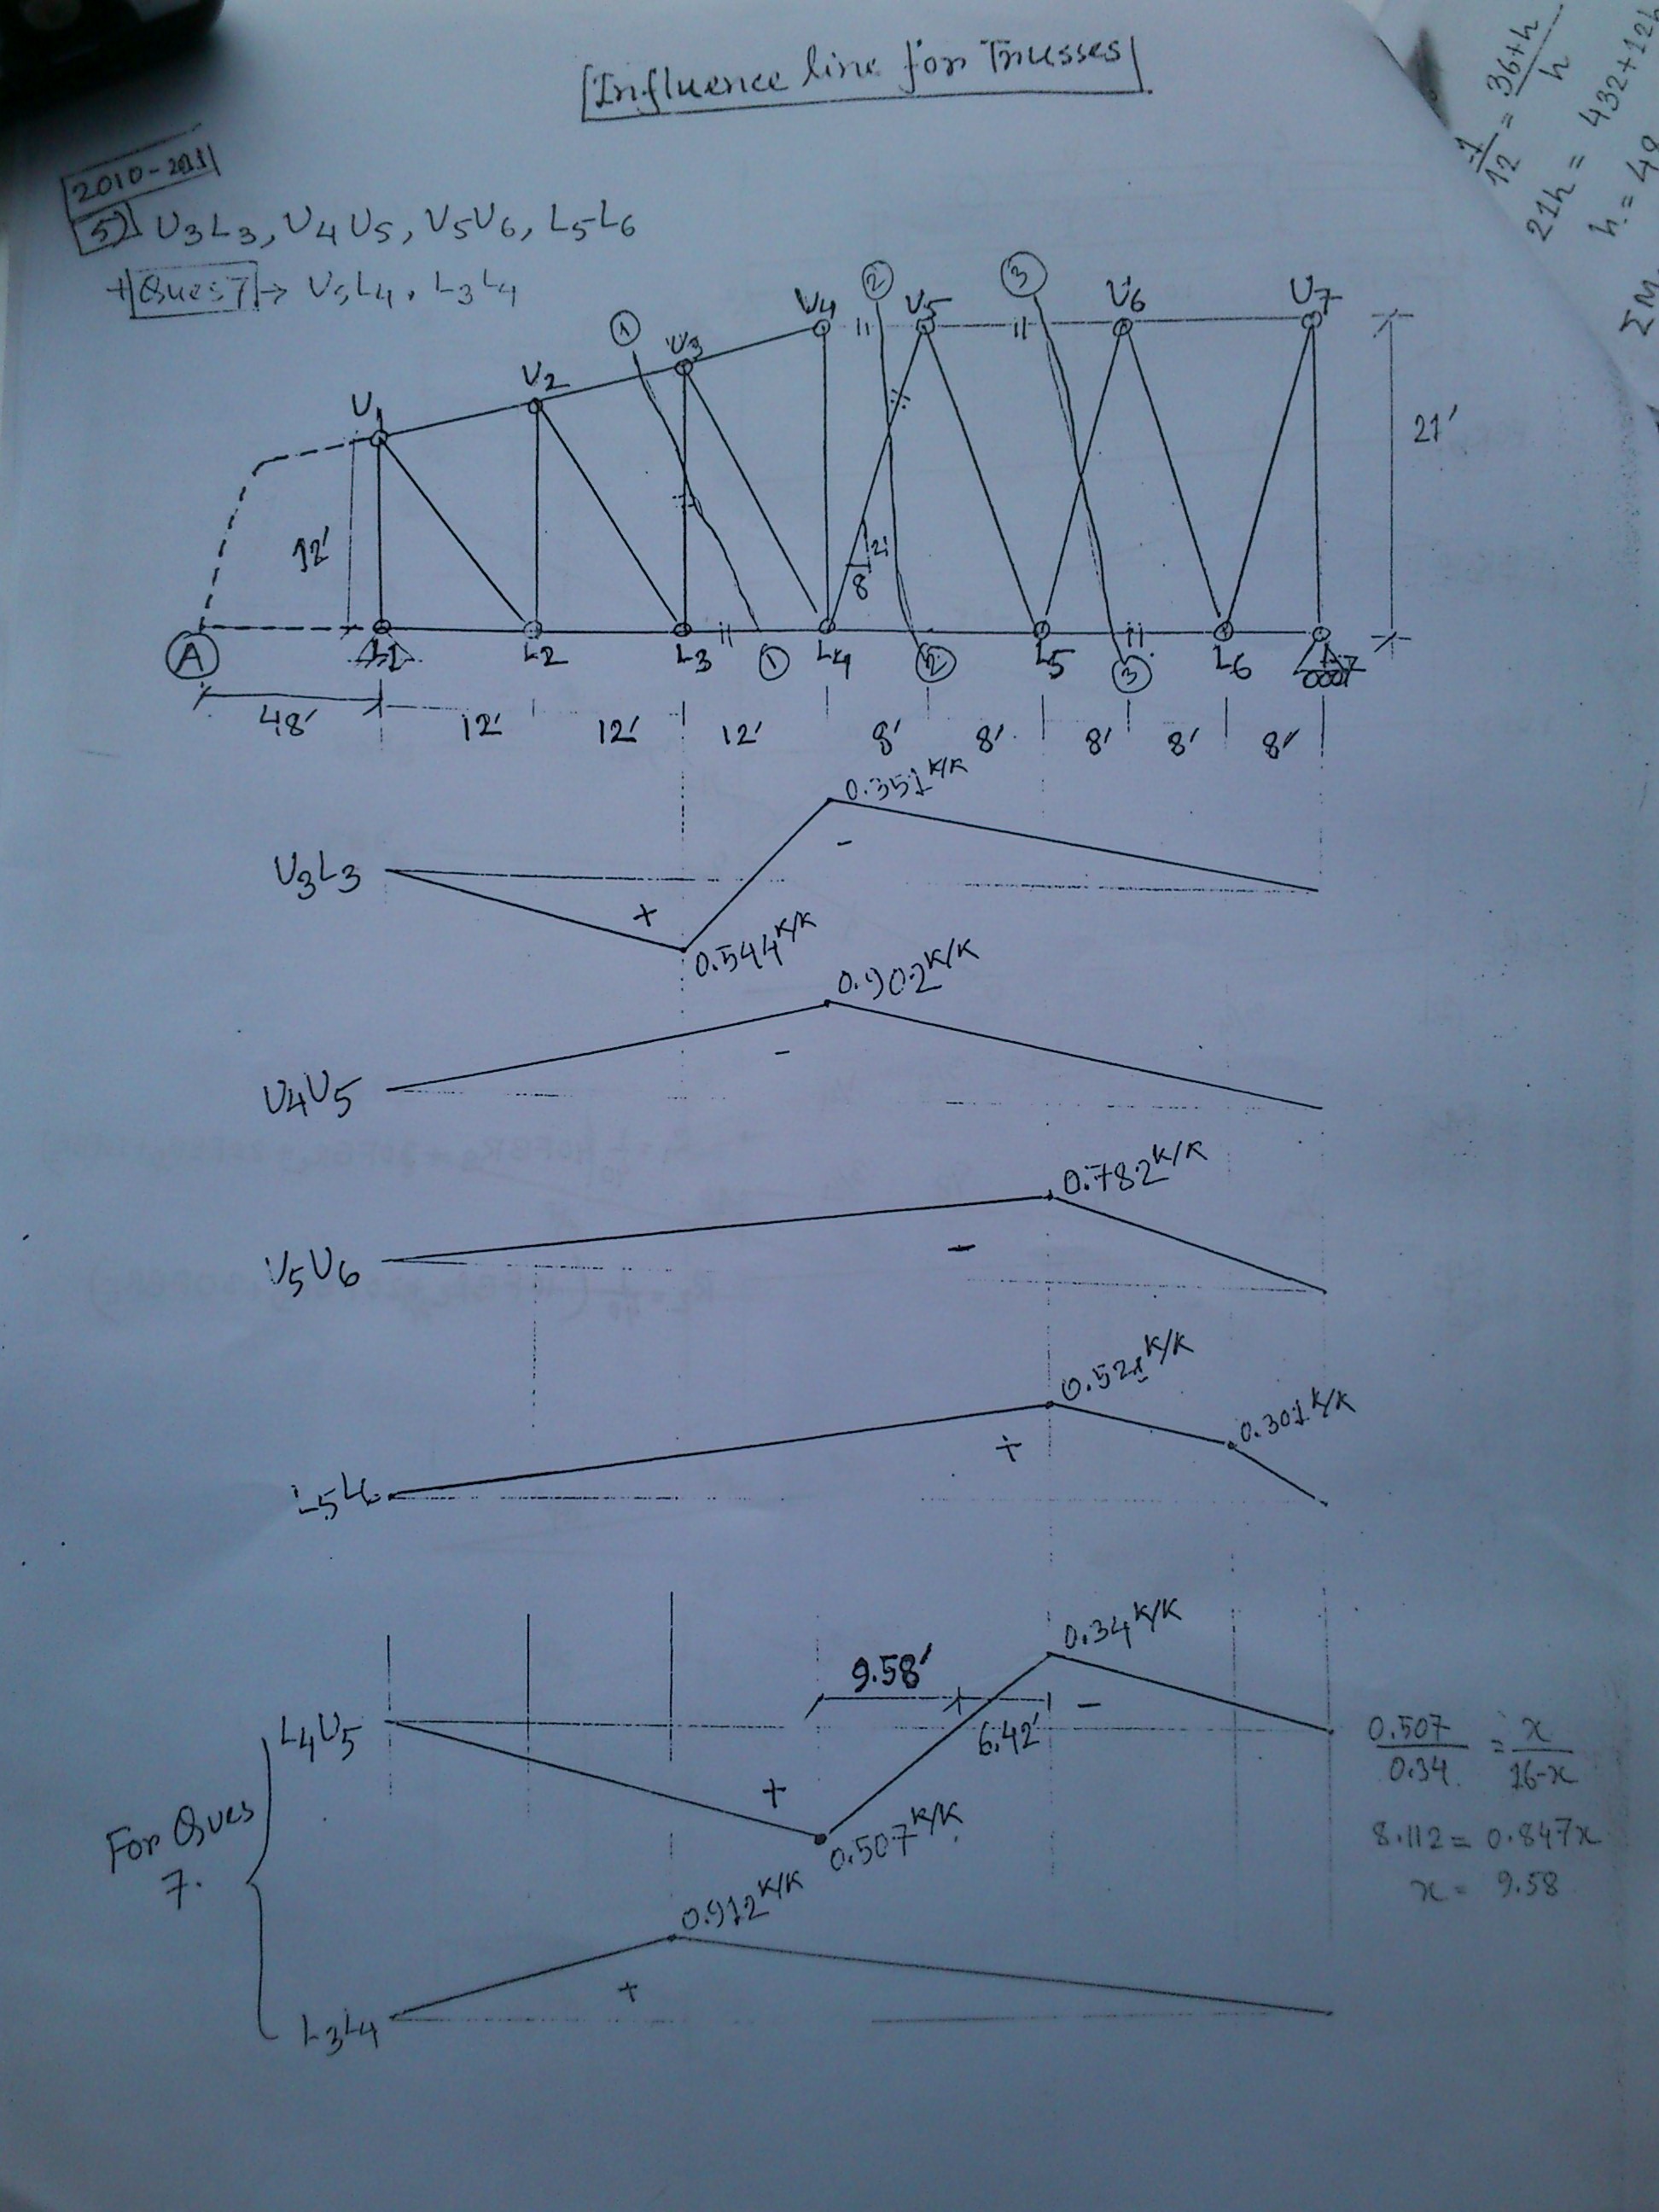 Influence line for Trusses
2010-2011
5) U3L3, U4U5, U5U6, L5L6
+ Ques 7 → U5L4, L3L4
7/12 = 36+h/h
21h = 432+12h
h = 48
ΣM
1 2 3
U1 U2 U3 U4 U5 U6 U7
12'
21'
21
8
A L1 L2 L3 1 L4 2 L5 3 L6
48' 12' 12' 12' 8' 8' 8' 8' 8'
U3L3
0.351 K/K
-
+
0.544 K/K
U4U5
0.902 K/K
-
U5U6
0.782 K/K
-
L5L6
0.521 K/K
0.301 K/K
+
For Ques 7.
L4U5
9.58'
6.42'
0.34 K/K
-
+
0.507 K/K
0.507/0.34 = x/16-x
8.112 = 0.847x
x = 9.58
L3L4
0.912 K/K
+